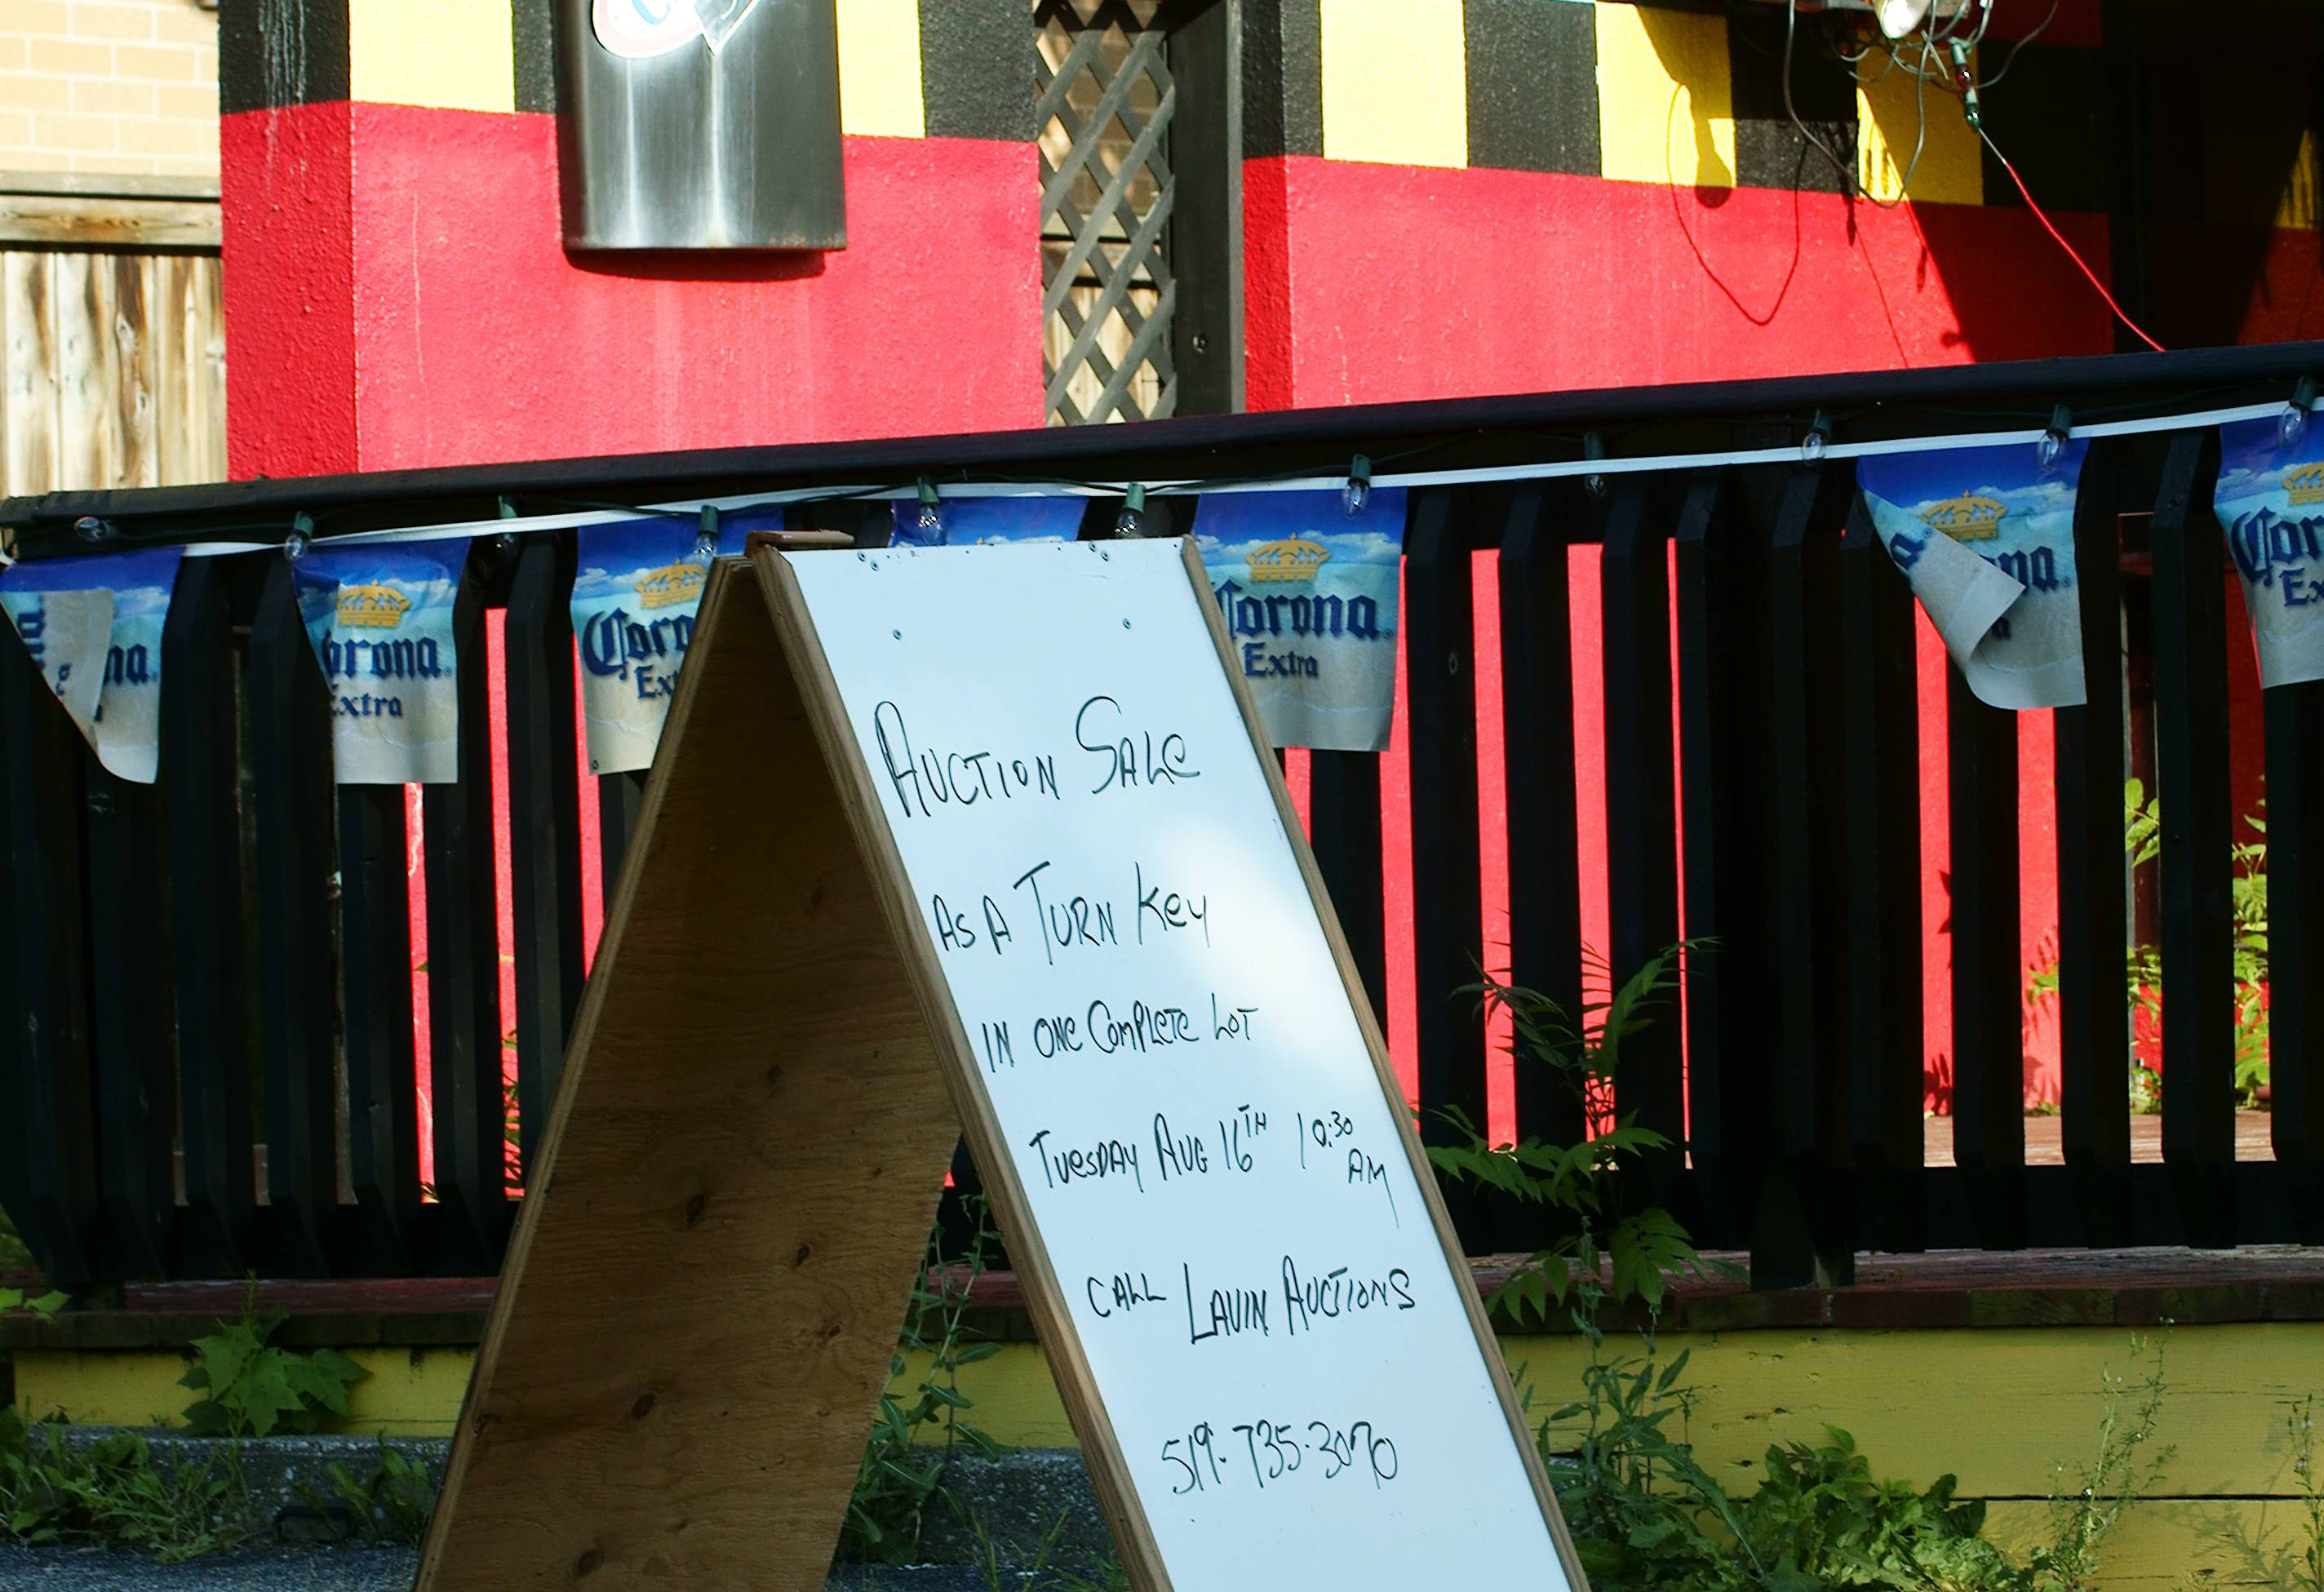 na.
rona.
Extra
Coro
Ext
Corona.
Extra
ona.
a
Cor
Ex
AUCTION SALe
AS A TURN Key
IN ONe COMPLeTe LOT
TUeSDAY AUG 16TH 10:30
AM
CALL LAVIN AUCTIONS
519.735.3070